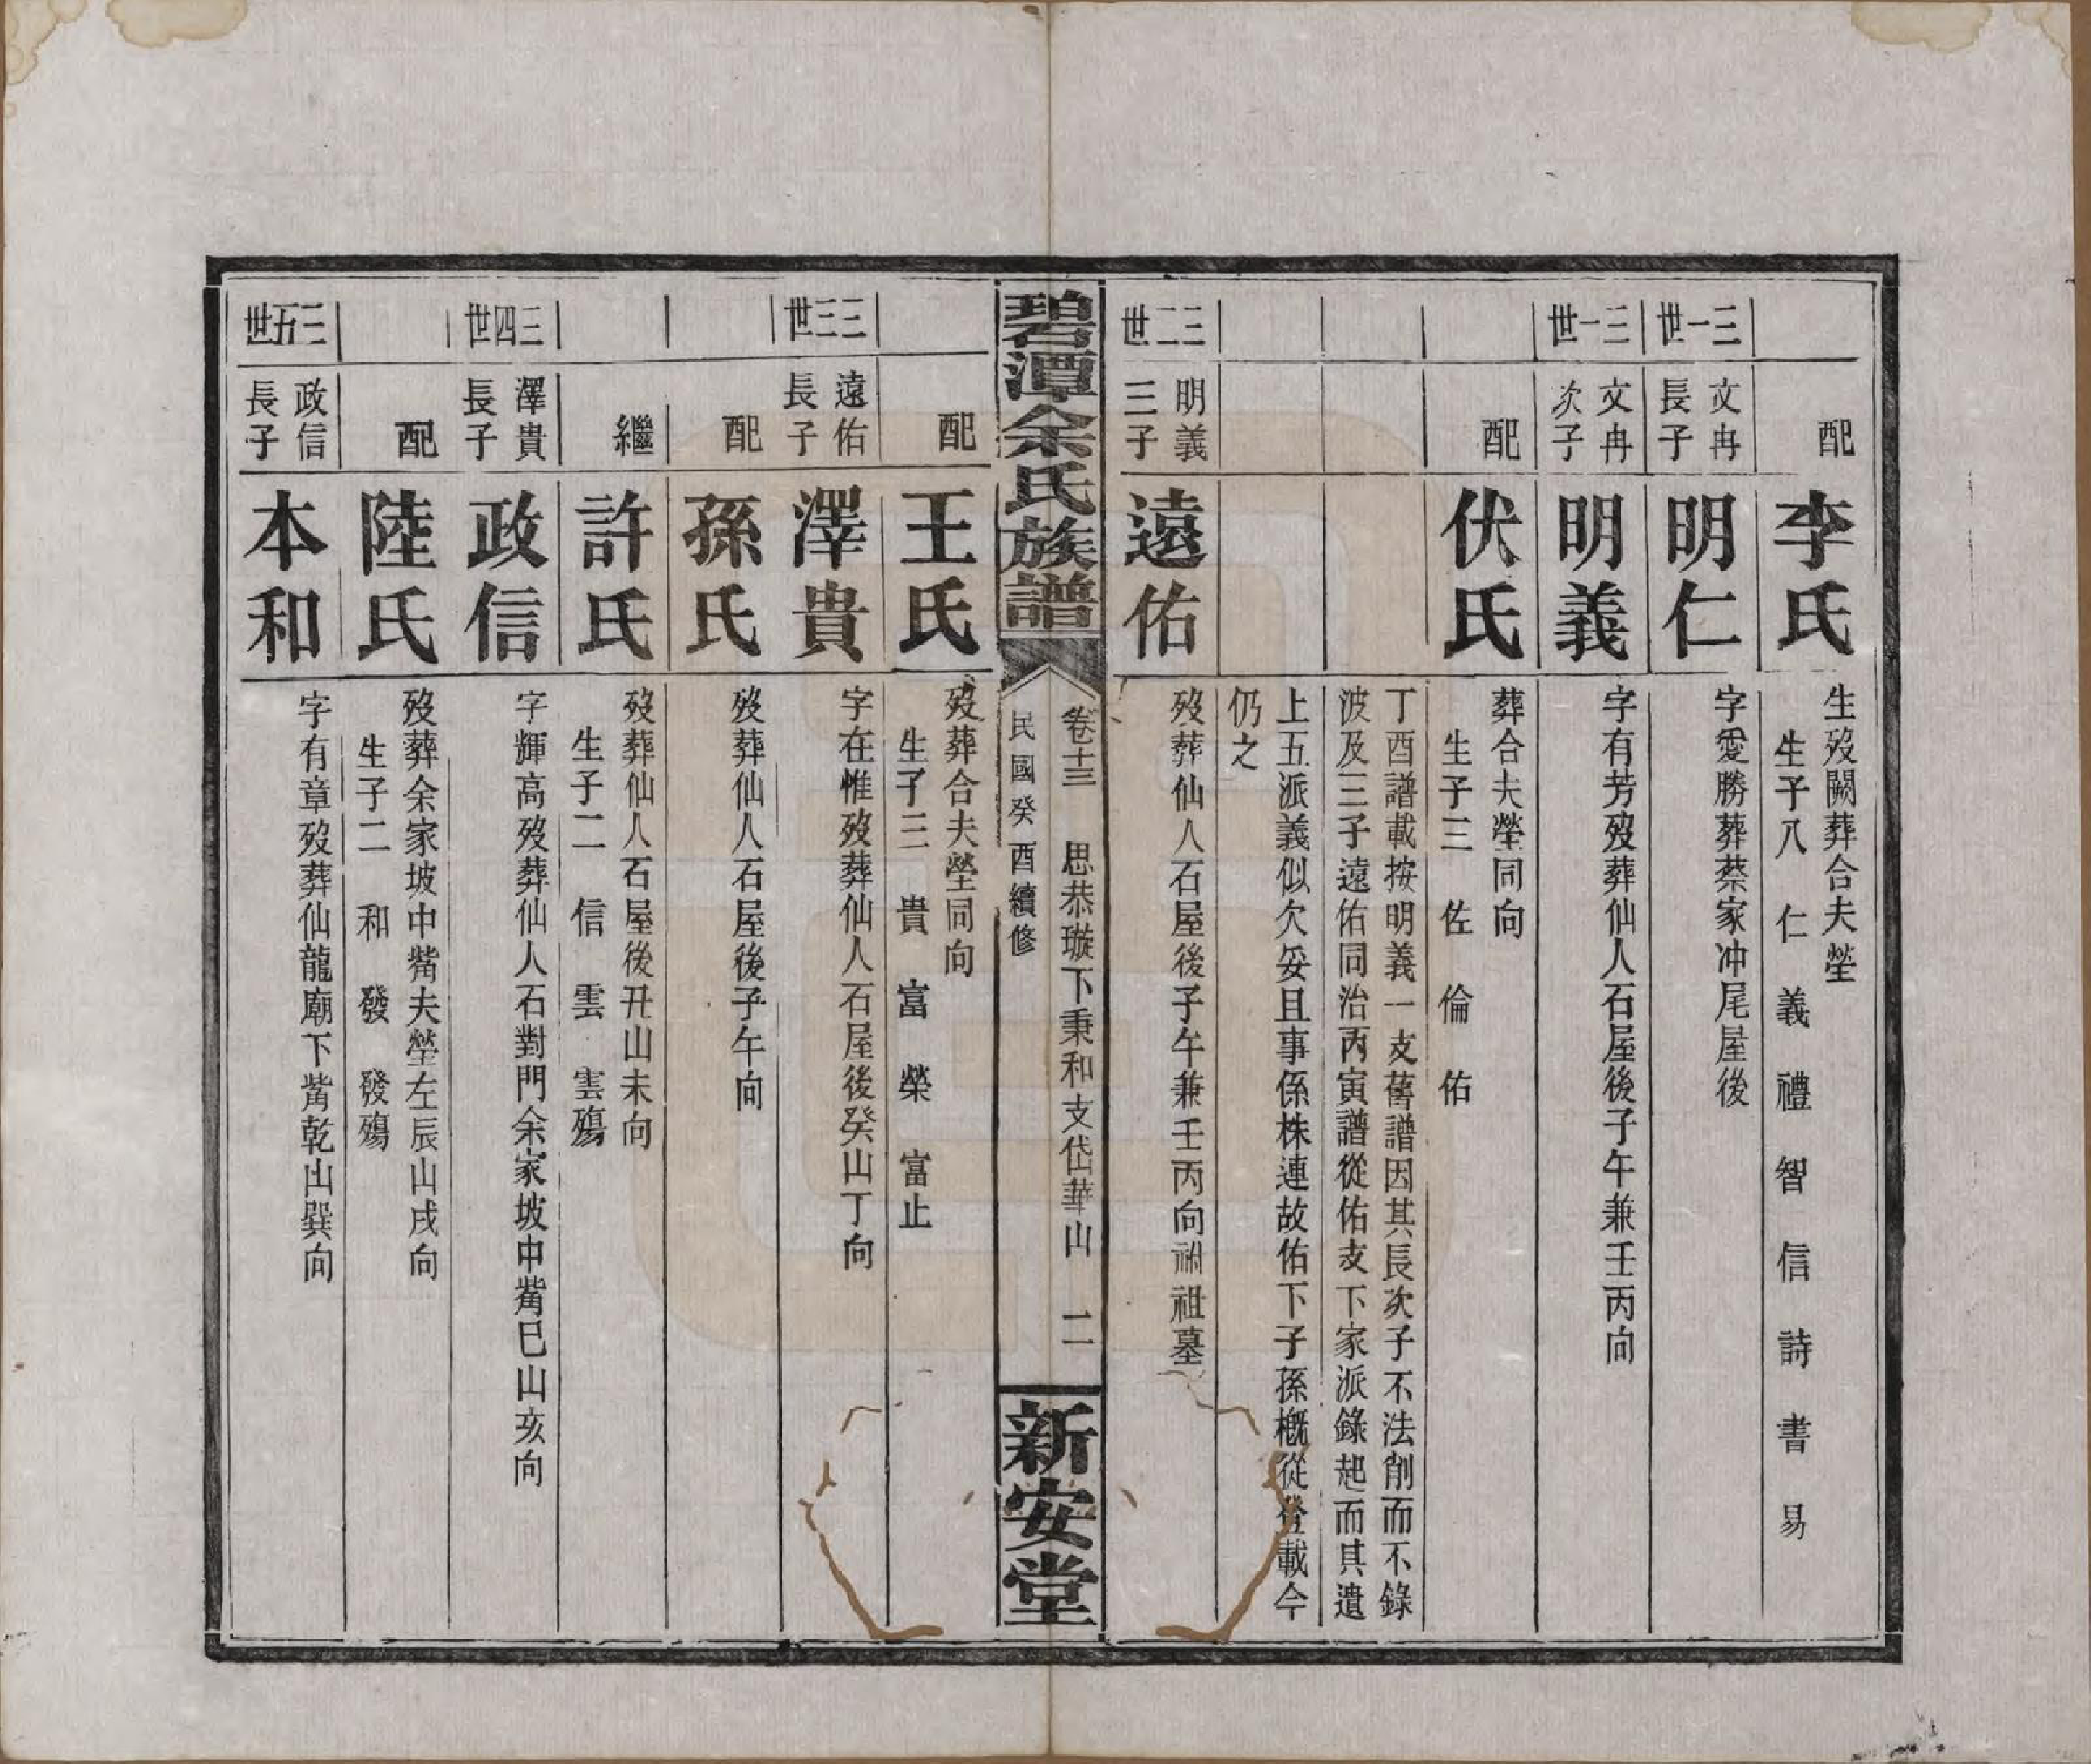 配
李氏
生歿闕葬合夫塋
生子八 仁 義 禮 智 信 詩 書 易
三一世
文冉
長子
明仁
字愛勝葬蔡家冲尾屋後
三一世
文冉
次子
明義
字有芳歿葬仙人石屋後子午兼壬丙向
配
伏氏
葬合夫塋同向
生子三 佐 倫 佑
丁酉譜載按明義一支舊譜因其長次子不法削而不錄
波及三子遠佑同治丙寅譜從佑支下家派錄起而其遺
上五派義似欠妥且事係株連故佑下子孫概從登載今
仍之
三二世
明義
三子
遠佑
歿葬仙人石屋後子午兼壬丙向祔祖墓
碧潭余氏族譜
卷十三 思恭璇下秉和支岱華山 二
民國癸酉續修
新安堂
配
王氏
歿葬合夫塋同向
生子三 貴 富 榮 富止
三三世
遠佑
長子
澤貴
字在惟歿葬仙人石屋後癸山丁向
配
孫氏
歿葬仙人石屋後子午向
繼
許氏
歿葬仙人石屋後丑山未向
生子二 信 雲 雲殤
三四世
澤貴
長子
政信
字輝高歿葬仙人石對門余家坡中嘴巳山亥向
配
陸氏
歿葬余家坡中嘴夫塋左辰山戌向
生子二 和 發 發殤
三五世
政信
長子
本和
字有章歿葬仙龍廟下嘴乾山巽向